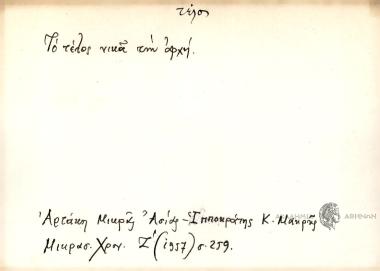 τέλος
Τό τέλος νικᾷ τήν ἀρχή.
Ἀρτάκη Μικρᾶς Ἀσίας - Ἱπποκράτης Κ. Μακρῆς
Μικρασ. Χρον. Ζ' (1957) σ. 259.
ΑΚΑΔΗΜΙΑ ΑΘΗΝΩΝ